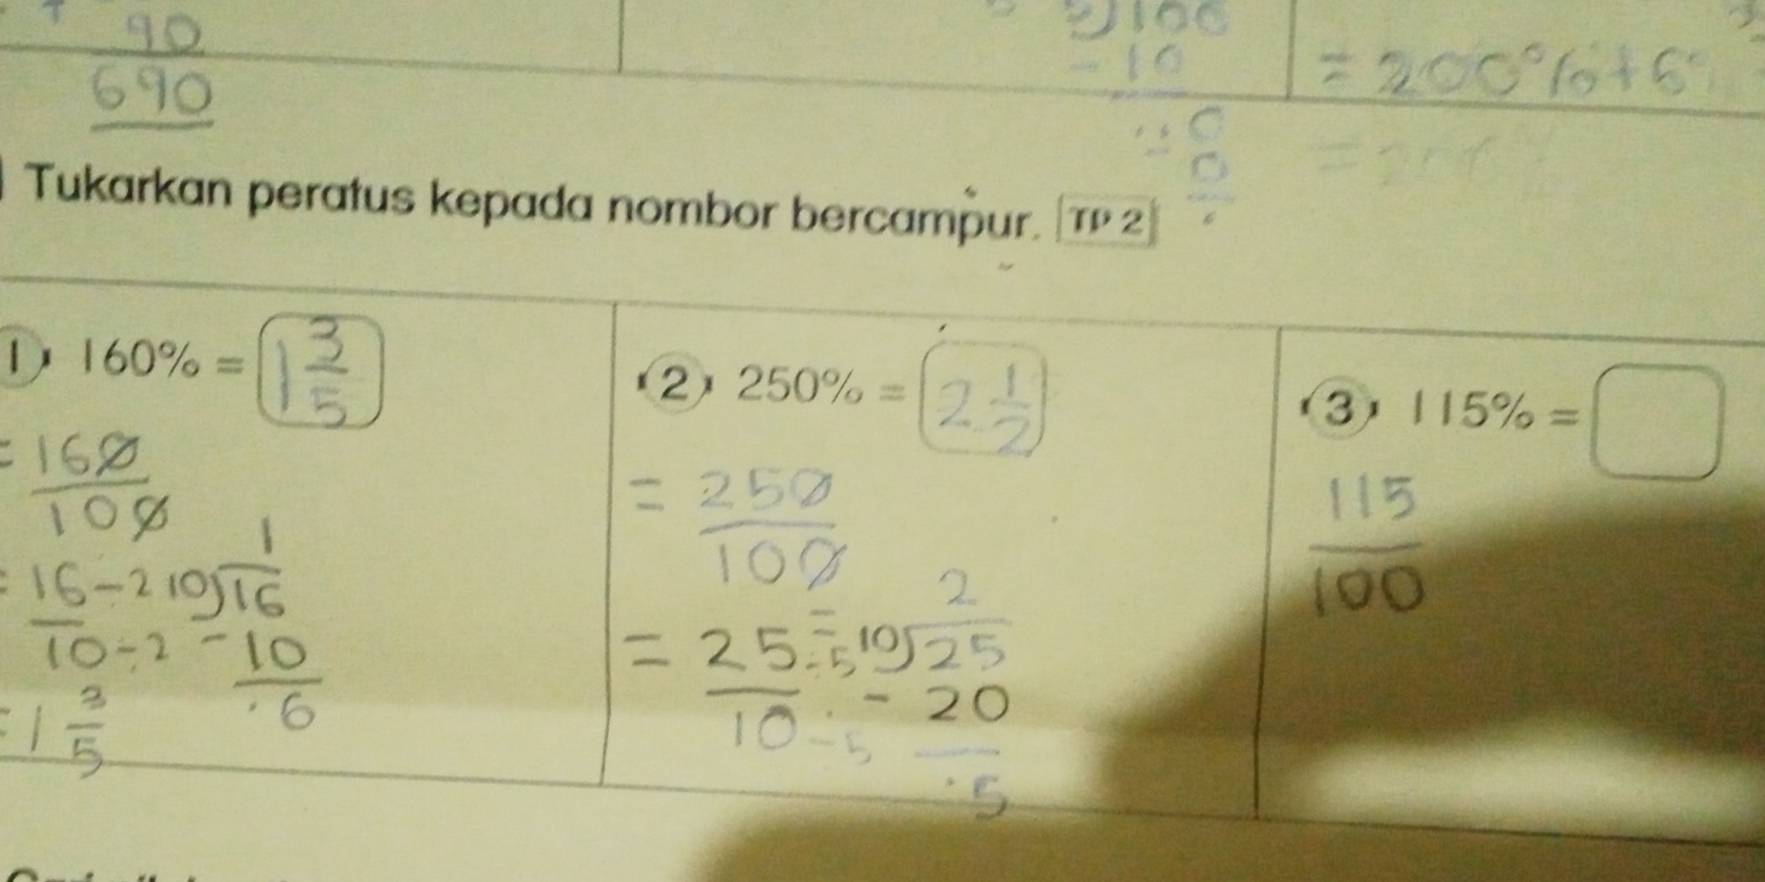 90
690
5)100
- 10
0
0
= 200% + 6
Tukarkan peratus kepada nombor bercampur. TP 2
1 160% = 1 3/5
= 160/100
= 16 ÷ 2 / 10 ÷ 2
1
10)16
- 10
6
= 1 3/5
2 250% = 2 1/2
= 250/100
= 25 ÷ 5 / 10 ÷ 5
2
10)25
- 20
5
3 115% =
115/100